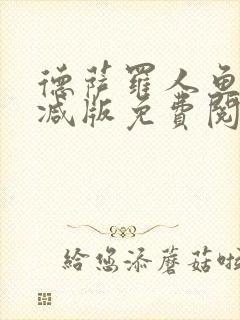 德萨罗人鱼
减版免费阅
给您添蘑菇啦